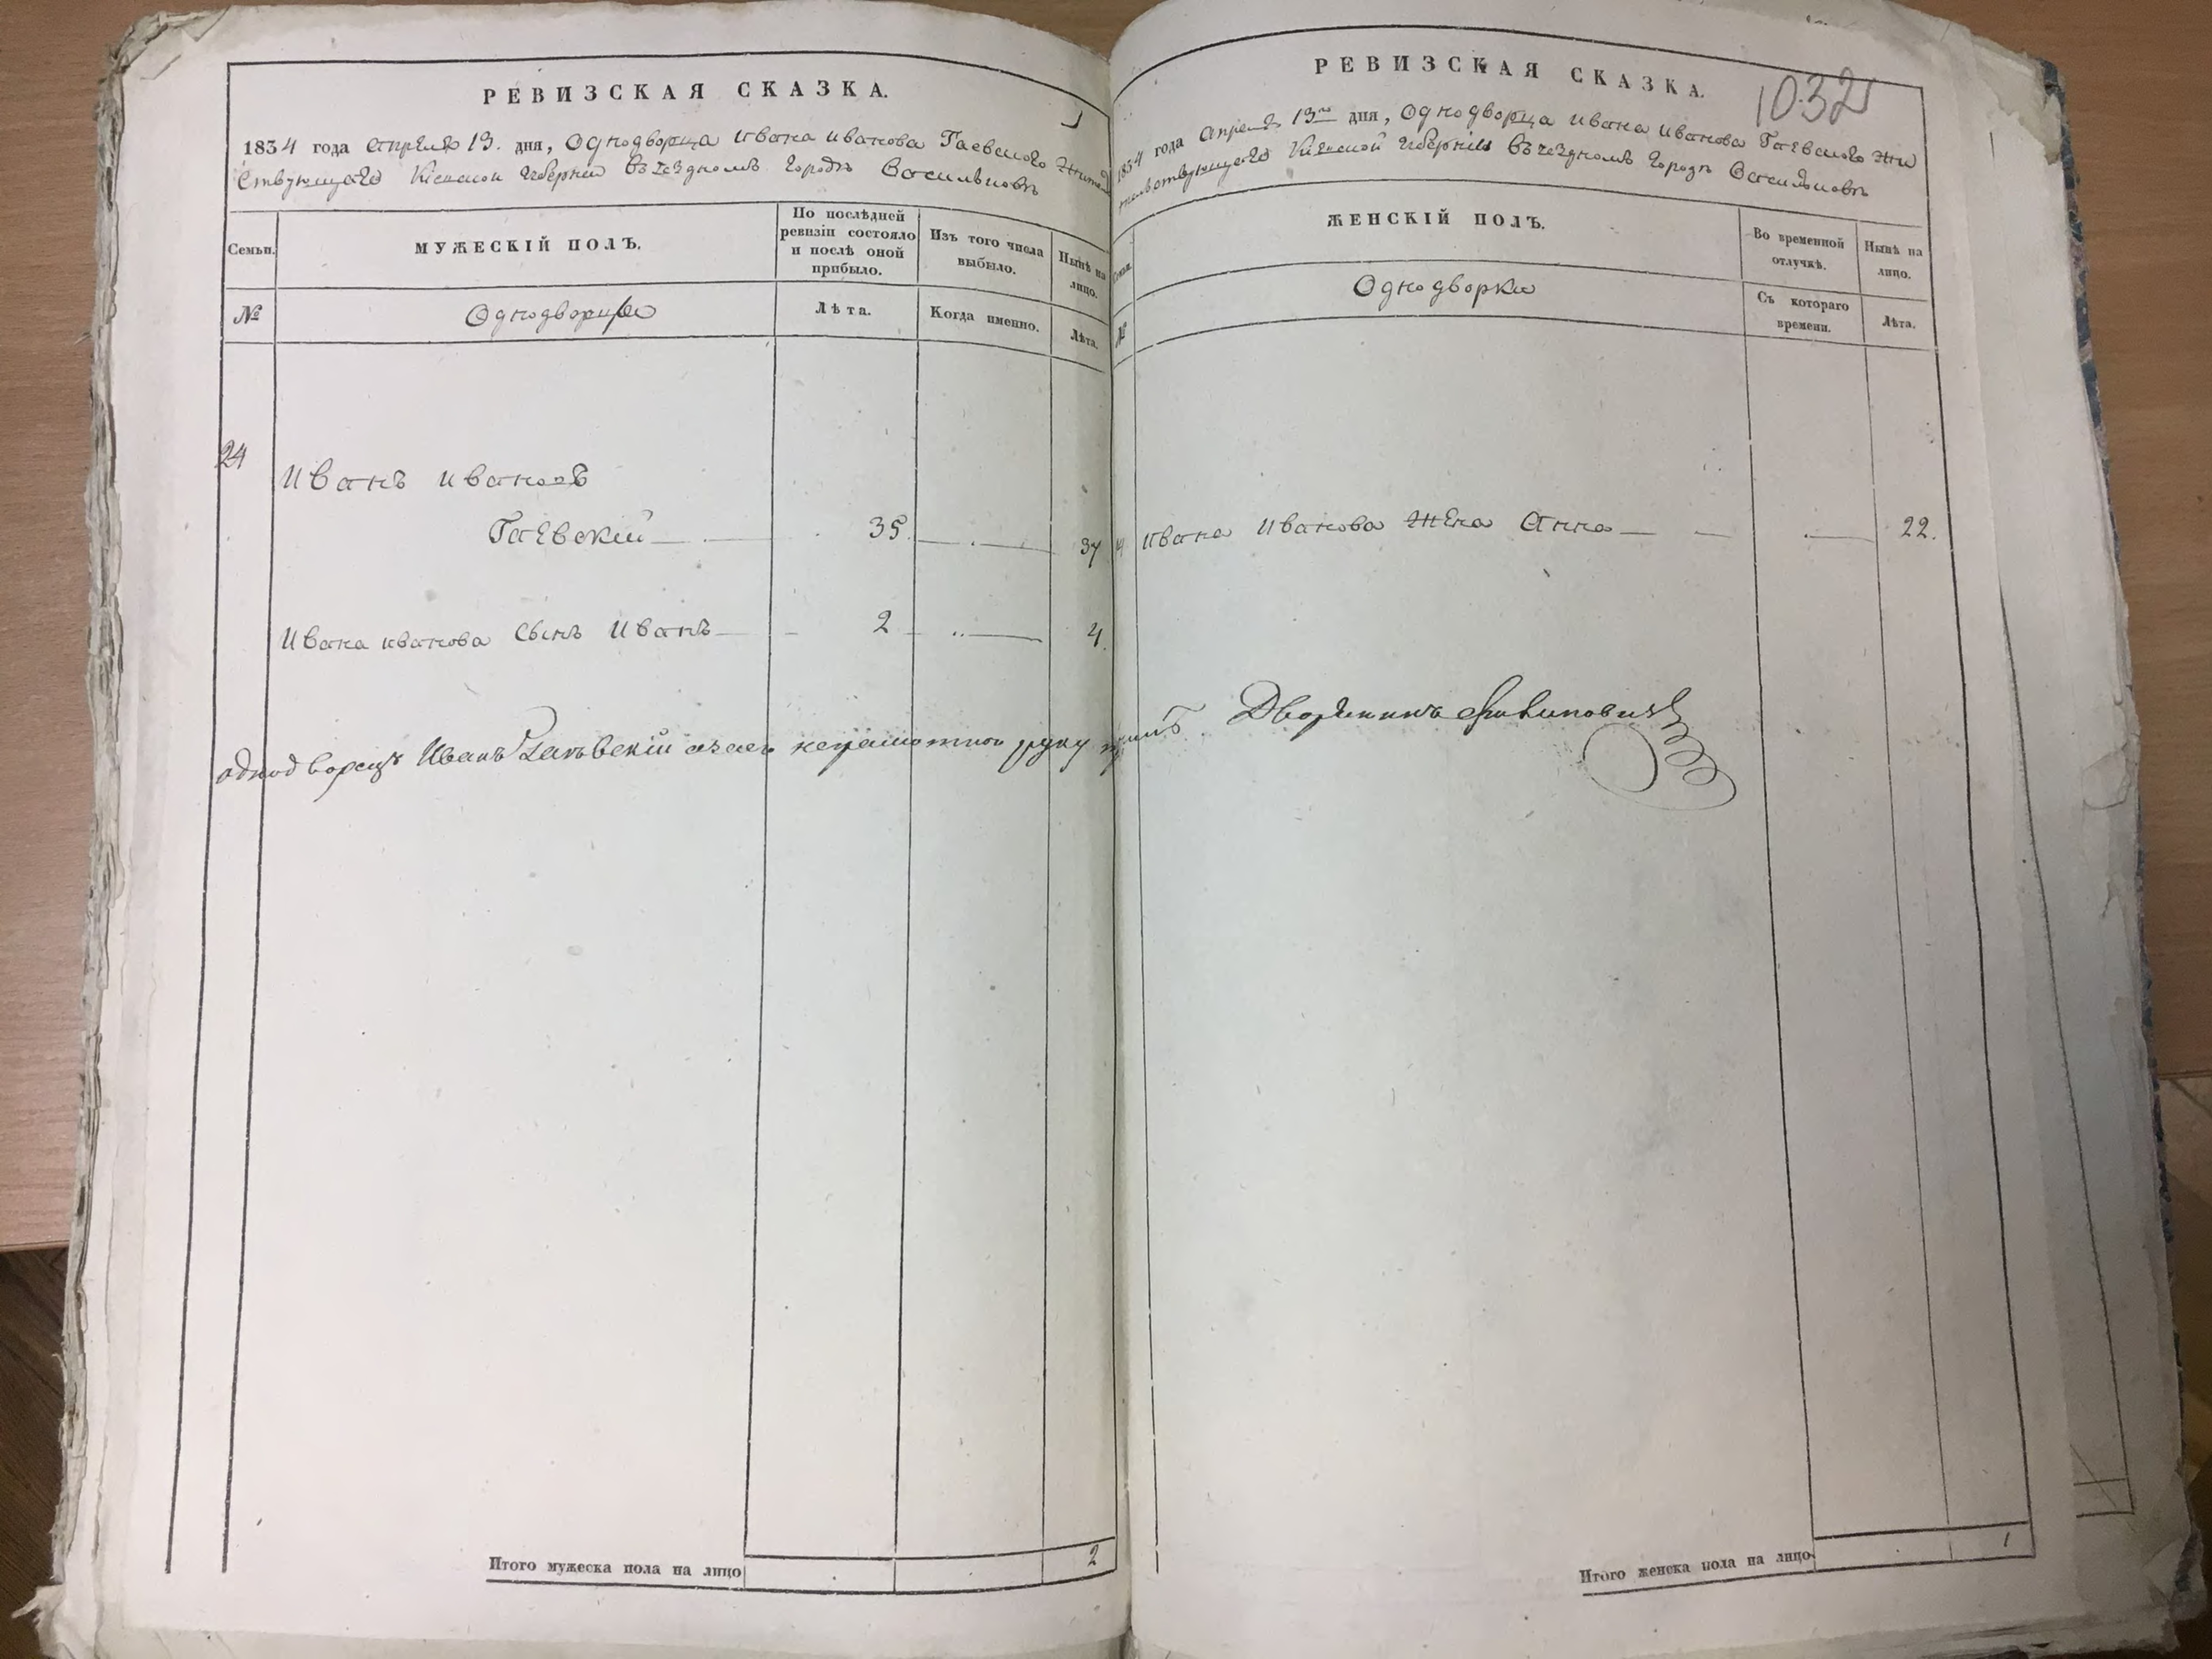 РЕВИЗСКАЯ СКАЗКА.
1834 года апреля 13. дня, Однодворца Ивана Иванова Гаевского жител
ствующаго Киевской Губернии въ уездномъ городѣ Василькові
Семьи.
МУЖЕСКІЙ ПОЛЪ.
По послѣдней
ревизіи состояло
и послѣ оной
прибыло.
Изъ того числа
выбыло.
Нынѣ на
лицо.
№
Однодворцы
Лѣта.
Когда именно.
Лѣта.
24
Иванъ Ивановъ
Гаевскій 35 37
Ивана Иванова сынъ Иванъ 2 4.
однодворецъ Иванъ Гаевскій а за его неграмотного руку
Итого мужеска пола на лицо 2
1032
РЕВИЗСКАЯ СКАЗКА.
1834 года апреля 13го дня, Однодворца Ивана Иванова Гаевского жи
тельствующаго Киевской Губернии въ уездномъ городѣ Василькове
Семьи.
ЖЕНСКІЙ ПОЛЪ.
Во временной
отлучкѣ.
Нынѣ на
лицо.
№
Однодворки
Съ котораго
времени.
Лѣта.
Ивана Иванова жена Анна 22.
Дворянинъ
Итого женска пола на лицо 1